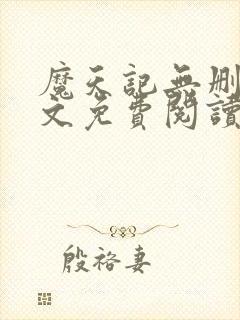 魔天記無刪
文免費閱讀
殷裕妻